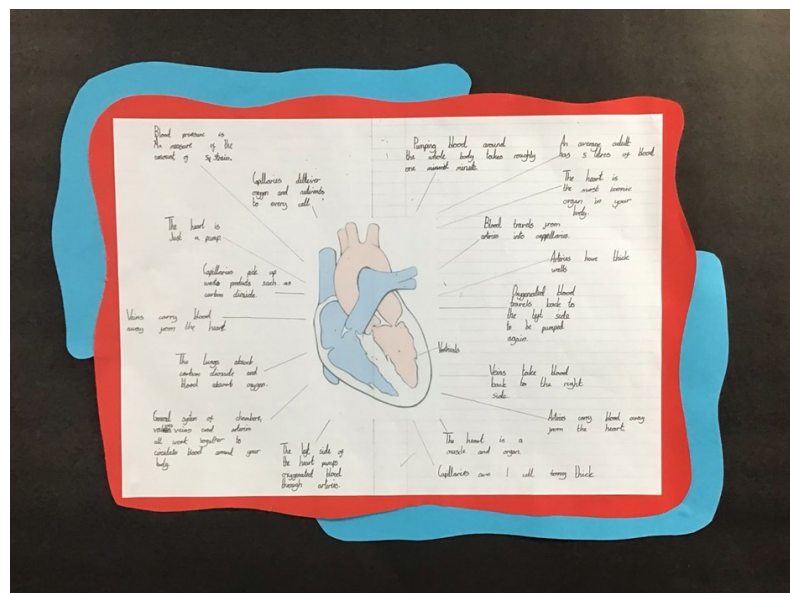 Blood pressure is
An measure of the
amount of
Capillaries deliver
oxygen and nutrients
to every cell.
The heart is
Just a pump.
Capillaries pick up
waste products such as
carbon dioxide.
Veins carry blood
away from the heart
The lungs absorb
carbon dioxide and
blood absorbs oxygen.
General system of chambers,
veins and arteries
all work together to
circulate blood around your
body.
The left side of
the heart pumps
oxygenated blood
through arteries.
Pumping blood around
the whole body takes roughly
one minute.
An average adult
has 5 litres of blood
The heart is
the most
organ in your
body.
Blood travels from
arteries into cappillaries.
Arteries have thick
walls
Oxygenated blood
travels back to
the left side
to be pumped
again.
Ventricals
Veins take blood
back to the right
side.
Arteries carry blood away
from the heart.
The heart is a
muscle and organ.
Capillaries are 1 cell thick